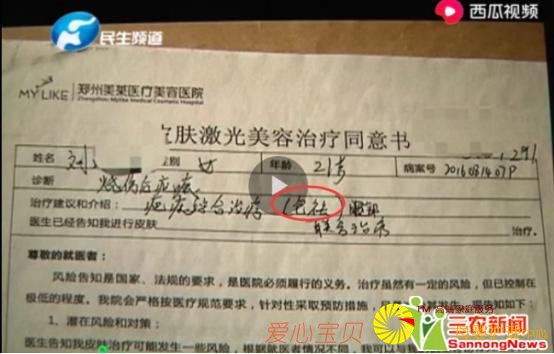 民生频道
西瓜视频
MYLIKE 郑州美莱医疗美容医院
Zhengzhou Mylike Medical Cosmetic Hospital
肤激光美容治疗同意书
姓名 刘 别 女 年龄 21岁 病案号 2016031407P
诊断 烧伤后疤痕
治疗建议和介绍: 疤痕综合治疗 (包祛) 腿部
医生已经告知我进行皮肤 联合治疗 治疗。
尊敬的就医者:
风险告知是国家、法规的要求,是医院必须履行的义务。治疗虽然有一定的风险,但已控制在
极低的程度。我院会严格按医疗规范要求,针对性采取预防措施,
1、潜在风险和对策:
医生告知我皮肤治疗可能发生一些风险,根据就医者情况不同,
爱心宝贝
三农新闻
SannongNews